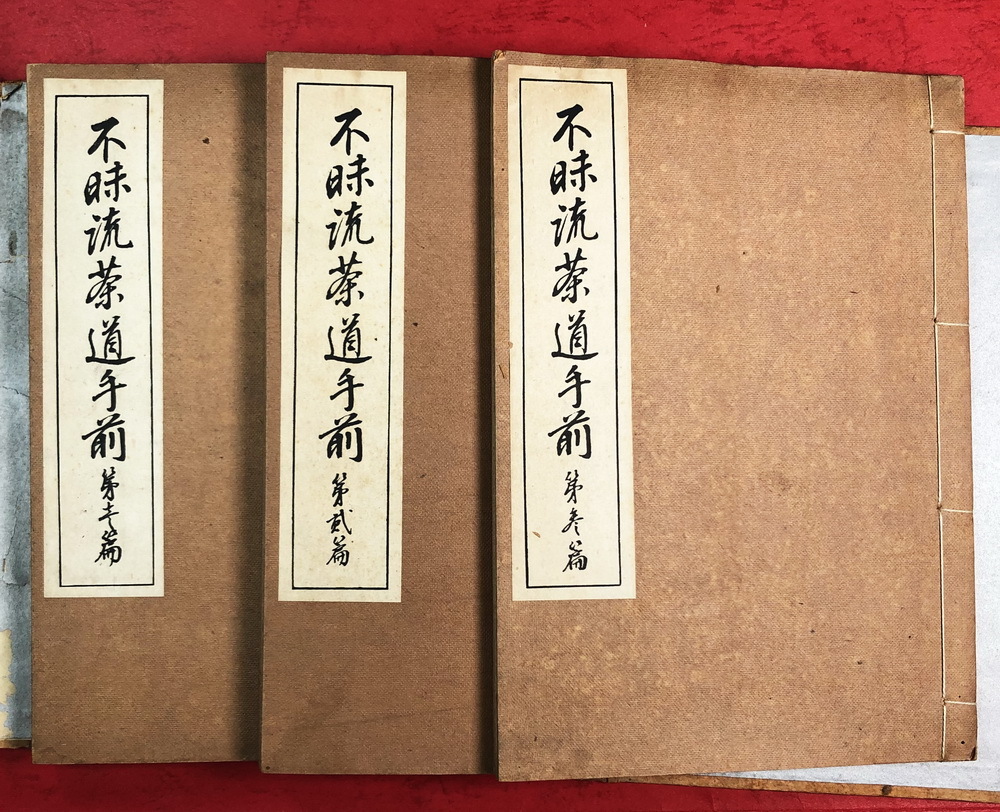 不昧流茶道手前 第壱篇
不昧流茶道手前 第貳篇
不昧流茶道手前 第参篇